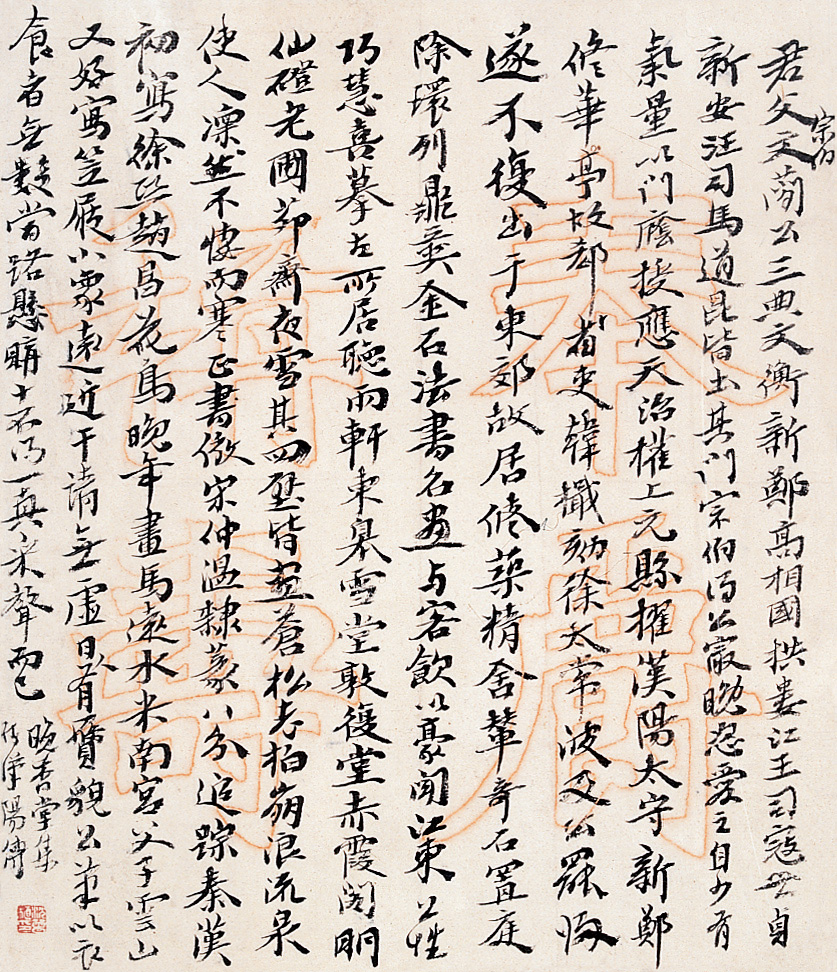 君父文簡公三典文衡新鄭高相國拱婁江王司寇世貞
宗伯
新安汪司馬道昆皆出其門宗伯得公最晚忽愛之自少有
氣量以門廕授應天治權上元縣擢漢陽太守新鄭
修華亭故郄省吏韓懺劾徐太常波及公罷歸
遂不復出于東郊故居修築精舍輦奇石置庭
除環列鼎彝金石法書名畫与客飲以豪聞江東公性
巧慧喜摹古所居聽雨軒東皋雪堂敦復堂赤霞閣明
仙磴老圃茆齋夜雪其四壁皆画蒼松老柏崩浪流泉
使人凜然不悽而寒正書倣宋仲溫隸篆八分追蹤秦漢
初寫徐熙趙昌花鳥晚年畫馬遠水米南宮父子雲山
又好寫笠屐小象遠近干請無虛日有贗貌公筆以衣
食者無數當路懸購十不得一真采聲而已
晚香堂集
孫漢陽傳